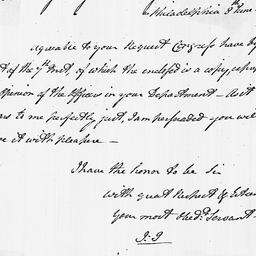 Philadelphia 8th June
agreeable to your Request Congress have by
t of the 7th Inst, of which the enclosed is a copy,
opinion of the Officers in your Department - as it
rs to me perfectly just, I am persuaded you will
e it with pleasure -
I have the honor to be Sir
with great Respect & Esteem
your most Obedt Servant
J.J